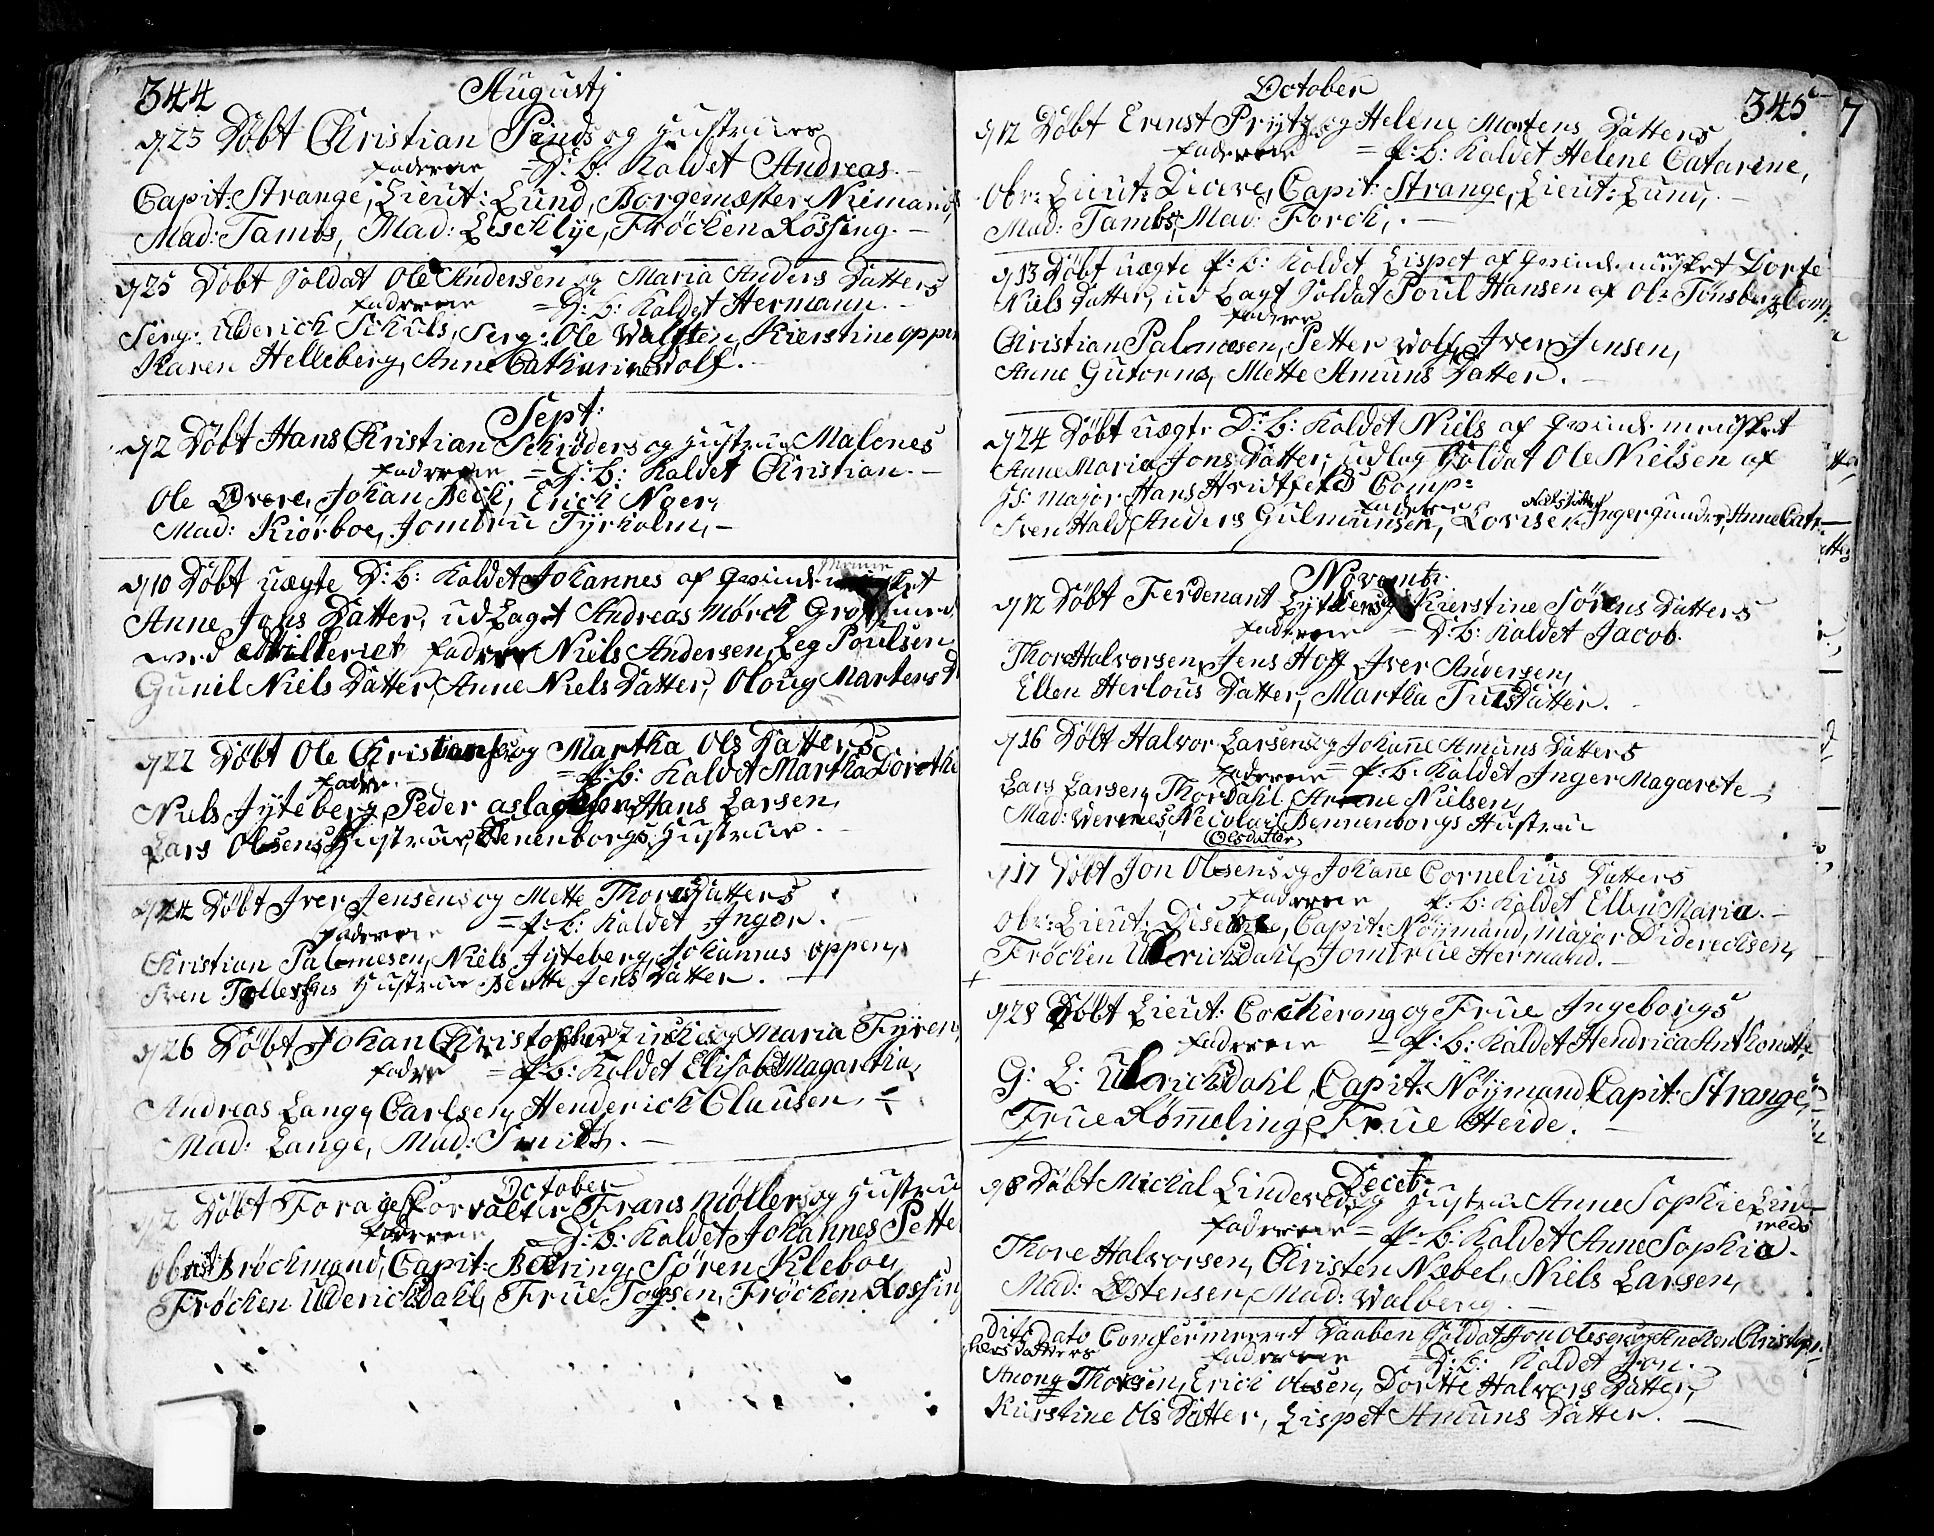 344
Augustj
d 23 Døbt Christian Pinds og Hustrues
Faderne = D: b: Kaldet Andreas.
Capit: Strange, Lieut: Lund, Borgemæster Niemand,
Mad: Tambs, Mad: Frøchen Rossing.
d 25 Døbt Soldat Ole Andersen og Maria Anders Datters
Faderne = D: b: Kaldet Hermann.
Serg: Ulderich Schuls, Serg: Ole Walsten, Kierstine oppen
Karen Helleberg, Anne Catharine Wolf.
Sept:
d 2 Døbt Hans Christian Schiøders og Hustrue Malenes
Faderne = D: b: Kaldet Christian.
Ole Johan Beck, Erich
Mad: Kiørboe, Jomfrue Tyrholm,
d 10 Døbt uægte D: b: Kaldet Johannes af Qvinde
Anne Jons Datter, udLaget Andreas Mørch
wed Fadere Niels Andersen, Leg Poulsen
Gunil Niels Datter, Anne Niels Datter, Oloug Martens D
d 22 Døbt Ole Christians og Martha Ols Datters
Fadre. = P: b: Kaldet Martha Dorothe
Niels Jyteberg, Peder aslagsen, Hans Larsen,
Lars Olsens Hustrue, Benenborgs Hustrue.
d 24 Døbt Iver Jensens og Mette Thores Datters
Faderne = P: b: Kaldet Inger.
Christian Palmesen, Niels Jyteberg, Johannus oppen,
Sven Tollefsens Hustrue Berthe Jens Datter.
d 26 Døbt Johan Christopher og Maria
Fadre = P: b: Kaldet Elisabet Magaretha,
Andreas Lange, Carlsen, Henderich Clausen
Mad: Lange, Mad: Smith.
October
d 2 Døbt Forage Forvalter Frans Møllers og Hustru
Faderne D: b: Kaldet Johannes Pette
Obrist: Brøchmand, Capit: Bæring, Søren Kleboe,
Frøchen Ulderichdahl, Frue Frøchen Rossing
October 345 7
d 12 Døbt Ernst Prytz og Helene Mortens Datters
Faderne = P: b: Kaldet Helene Catarine,
Obr: Lieut: Capit: Strange, Lieut: Lund,
Mad: Tambs, Mad: Forch,
d 13 Døbt uægte P: b: Kaldet Lispet af Qvindemennisket Dorte
Niels Datter, udLagt Soldat Poul Hansen af Ob: Tønsbergs Comp:
Fadere
Christian Palmesen, Petter Wolf, Iver Jensen,
Anne Gutorms, Mette Amuns Datter.
d 24 Døbt uægte D: b: Kaldet Niels af Qvinde mennisket
Anne Maria Jons Datter, udlag Soldat Ole Nielsen af
Major Hans Hvidtfelds Comp:
Fadere
Sven Hald, Anders Gulmunsen, Lovise Inger gunder, Anne Catr
Novemb:
d 12 Døbt Ferdenant og Kierstine Sørens Datters
Faderne = D: b: Kaldet Jacob.
Thore Halvorsen, Jens Hoff, Iver Andersen,
Ellen Herlous Datter, Martha Juls Datter.
d 16 Døbt Halvor Larsens og Johanne Amuns Datters
Faderne = P: b: Kaldet Inger Magarete
Lars Larsen, Thor Dahl, Nielsen,
Mad: Nicolai Bennenborgs Hustrue
Olsdatter,
d 17 Døbt Jon Olsens og Johanne Cornelius Datters
Faderne P: b: Kaldet Ellen Maria.
Obr: Lieut: Capit: Nøymand, Major Diderechsen,
Frøchen Ulerichsdahl, Jomfrue Hermand.
d 28 Døbt Lieut: Cocherong og Frue Ingeborgs
Faderne = P: b: Kaldet Hendrica Anthonette,
G: L: Ulrichsdahl, Capit: Nøymand, Capit: Strange,
Frue Rømeling, Frue Heide.
Deceb:
d 8 Døbt Michal Lindereds og Hustrue Anne Sophie
Faderne = P: b: Kaldet Anne Sophia.
Thore Halvorsen, Christen Næbel, Niels Larsen,
Mad: Østensen, Mad: Walberg.
Dito Dato Comfermeret Daaben Soldat Jon Olsen og Anne Christoph
hers Datters Faderne D: b: Kaldet Jon.
Thorsen, Erich Olesen, Dorthe Halvors Datter,
Kierstine Ols Datter, Lispet Amuns Datter.